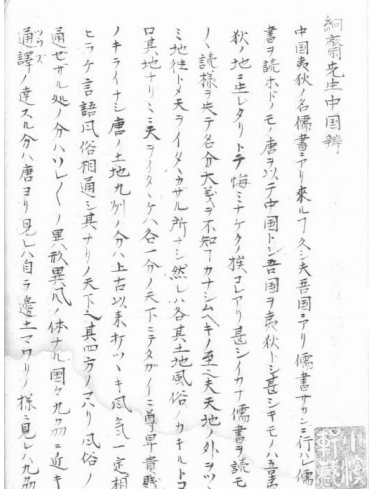 絅齋先生中国辨
中国夷狄ノ名儒書ニアリ來ルヿ久シ夫吾国ニアリ儒書サカンニ行ハレ儒
書ヲ読ホドノモノ唐ヲ以テ中国トシ吾国ヲ夷狄トシ甚シキモノハ吾夷
狄ノ地ニ生レタリトテ悔ミナケクノ揆コレアリ甚シイカナ儒書ヲ読モ
ノヽ読様ヲ失テ名分大義ヲ不知ヿカナシムヘキノ至也夫天地ノ外ヲツヽ
ミ地徃トメ天ヲイタヽカサル所ナシ然レハ各其土地風俗ノカキルトコ
ロ其地ナリニ天ヲイタヽケハ各一分ノ天下ニテタガイニ尊卑貴賎
ノキライナシ唐ノ土地九州ノ分ハ上古以来打ツヽキ風気一定相
ヒラケ言語風俗相通シ其ナリノ天下也其四方ノマハリ風俗ノ
通セサル処ノ分ハソレ〱ノ異形異風ノ体ナル国々九州ニ近キ
通譯ノ達スル分ハ唐ヨリ見レハ自ラ邊土マワリノ様ニ見レハ九州